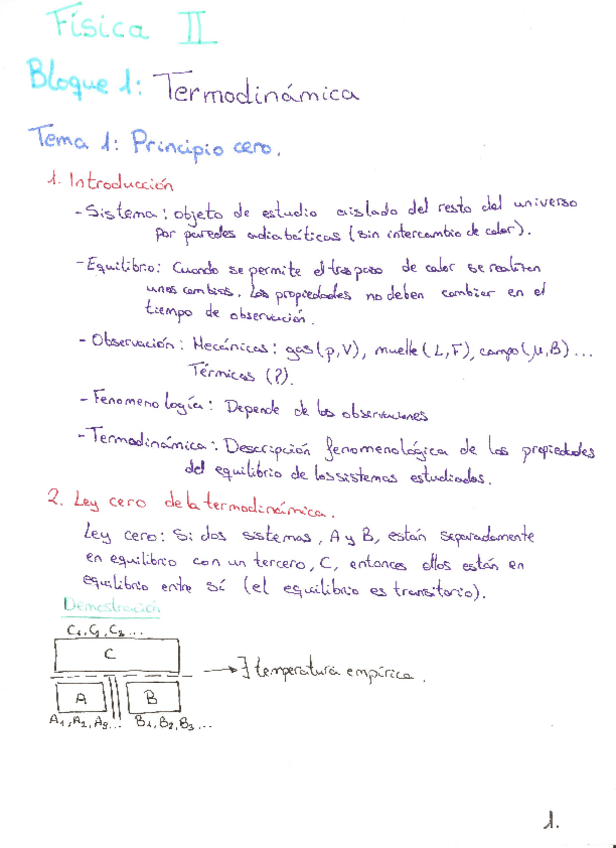 Física II
Bloque 1: Termodinámica
Tema 1: Principio cero.
1. Introducción
- Sistema: objeto de estudio aislado del resto del universo
por paredes adiabáticas (sin intercambio de calor).
- Equilibrio: Cuando se permite el traspaso de calor se realizan
unos cambios. Las propiedades no deben cambiar en el
tiempo de observación.
- Observación: Mecánicas: gas (p, V), muelle (L, F), campo (μ, B) ...
Térmicas (?).
- Fenomenología: Depende de las observaciones
- Termodinámica: Descripción fenomenológica de las propiedades
del equilibrio de los sistemas estudiados.
2. Ley cero de la termodinámica.
Ley cero: Si dos sistemas, A y B, están separadamente
en equilibrio con un tercero, C, entonces ellos están en
equilibrio entre sí (el equilibrio es transitorio).
Demostración
C
→ ∃ temperatura empírica.
A B
A1, A2, A3... B1, B2, B3, ...
1.